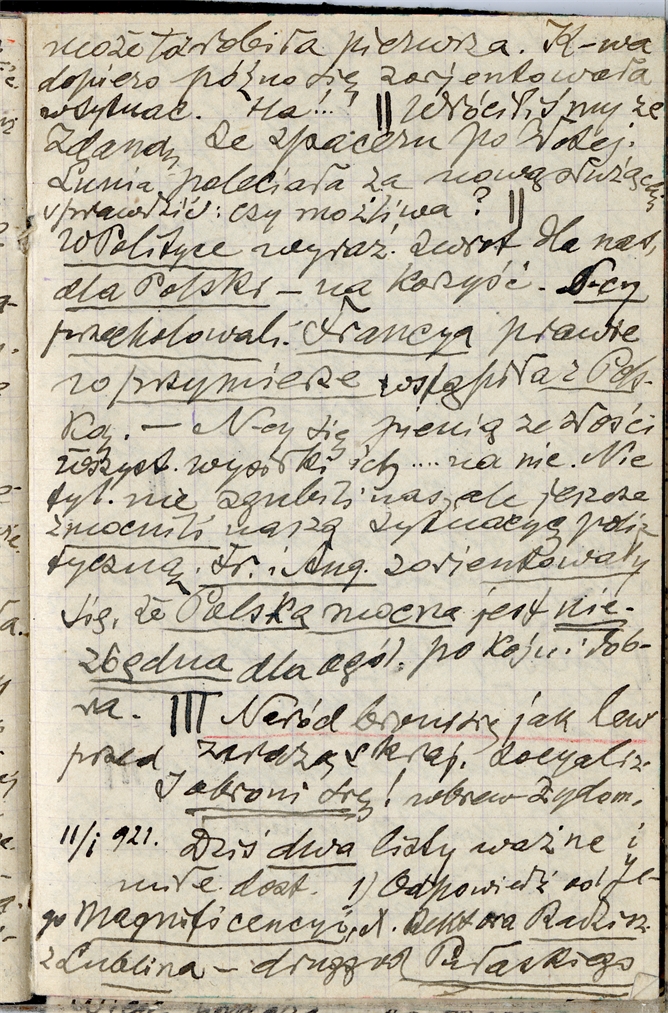 może to zrobiła pierwsza. K-wa
dopiero późno się zorjentowała
w sytuac. Ha!.. || Wróciliśmy ze
Zdand, ze spaceru po Złotej.
Lunia poleciała za nową służącą
sprawdzić: czy możliwa? ||
W Polityce wyraź. zwrot dla nas,
dla Polski – na korzyść. N-cy
przeholowali. Francya prawie
w przymierze wstąpiła z Pols-
ką. — N-cy się pienią ze złości
wszyst. wysiłki ich .... na nic. Nie
tyl. nie zgubili nas, ale jeszcze
zmocnili naszą sytuacyę poli-
tyczną. Fr. i Ang. zorjentowały
się, że Polska mocna jest nie-
zbędna dla ogól. pokoju i dob-
ra. ||| Naród broni się jak lew
przed zarazą skraj. socyaliz.
I obroni się! wbrew Żydom.
11/I 921. Dziś dwa listy ważne i
miłe dost. 1) Odpowiedź od Je-
go Magnificencyi, X. Rektora Radzisz.
z Lublina – drugą od Pułaskiego